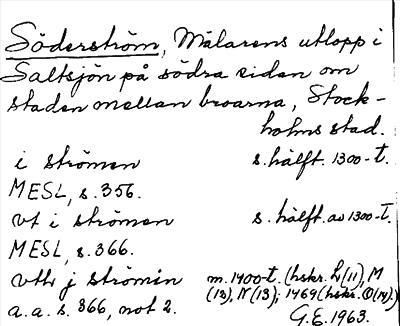 Söderström, Mälarens utlopp i
Saltsjön på södra sidan om
staden mellan broarna, Stock-
holms stad.
i strömen s. hälft. 1300-t.
MESL, s. 356.
vt i strömen s. hälft. av 1300-t.
MESL, s. 366.
vth j strömin m. 1400-t. (hskr. L (11), M
(12), N (13); 1469 (hskr. O (14)).
a. a. s. 366, not 2.
G.E. 1963.